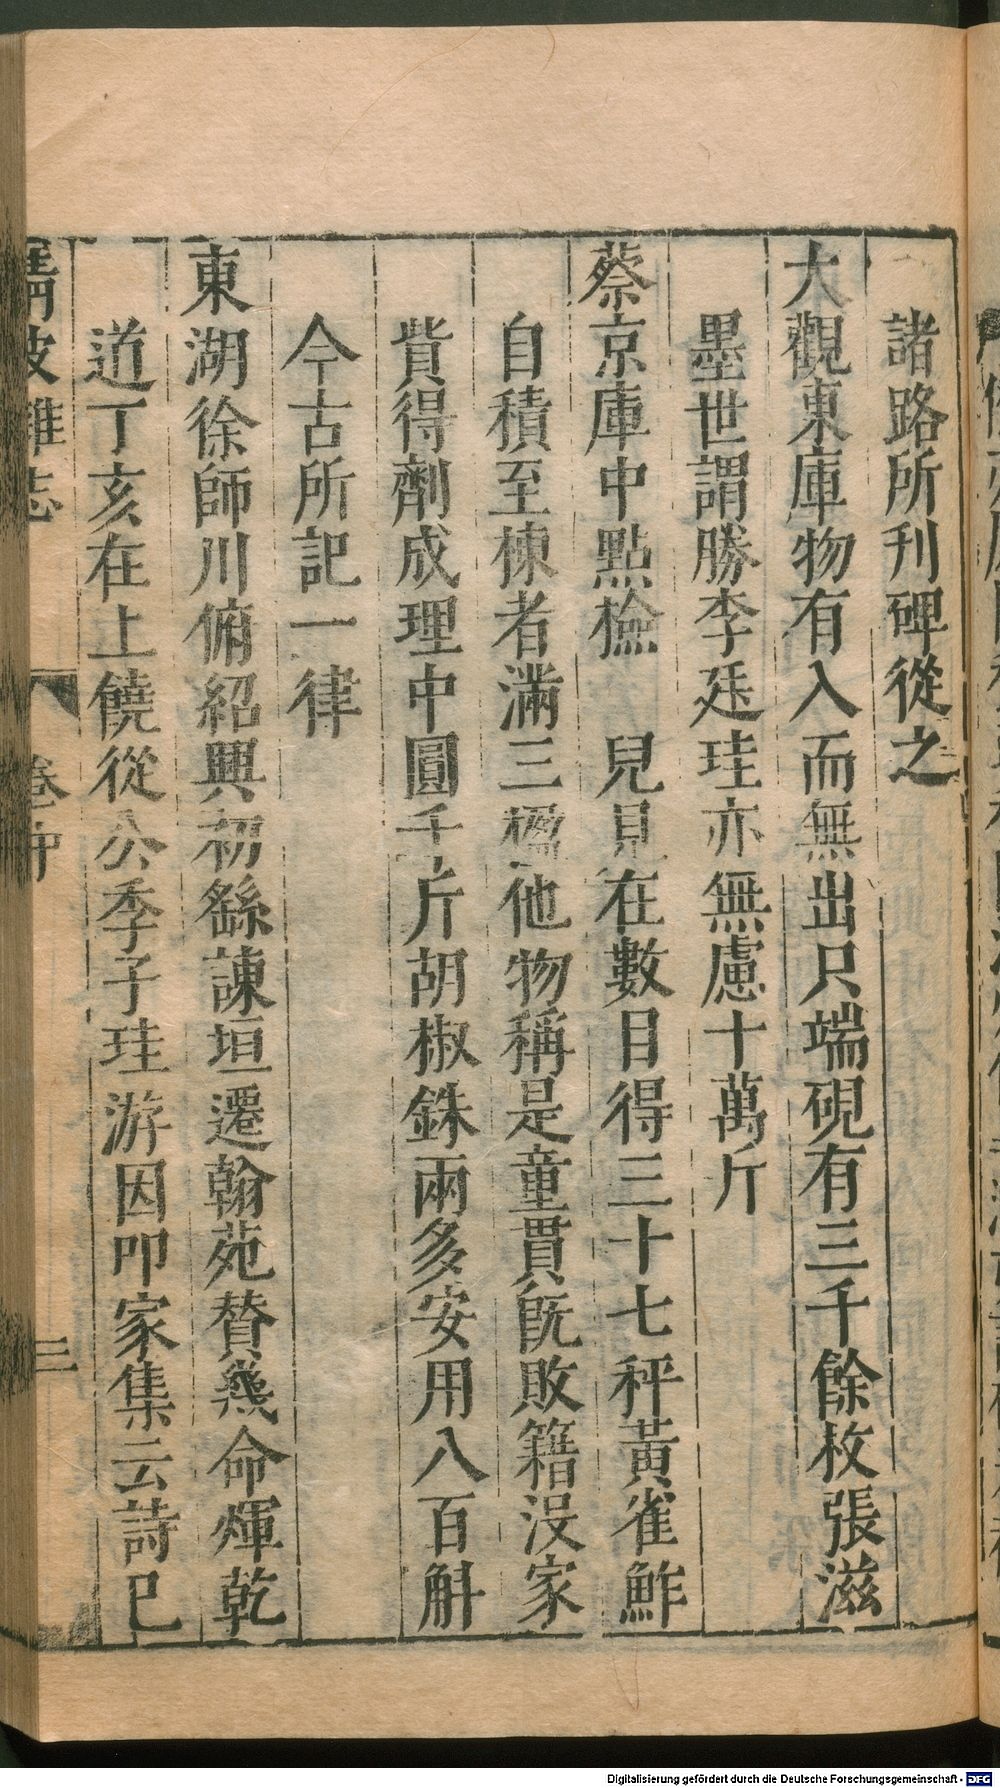 諸路所刊碑從之
大觀東庫物有入而無出只端硯有三千餘枚張滋
墨世謂勝李廷珪亦無慮十萬斤
蔡京庫中點檢　兒見在數目得三十七秤黃雀鮓
自積至棟者滿三楹他物稱是童貫旣敗籍沒家
貲得劑成理中圓千斤胡椒銖兩多安用八百斛
今古所記一律
東湖徐師川俯紹興初繇諫垣遷翰苑贊㡬命煇乾
道丁亥在上饒從公季子珪游因叩家集云詩已
雜志
卷中
三
Digitalisierung gefördert durch die Deutsche Forschungsgemeinschaft - DFG